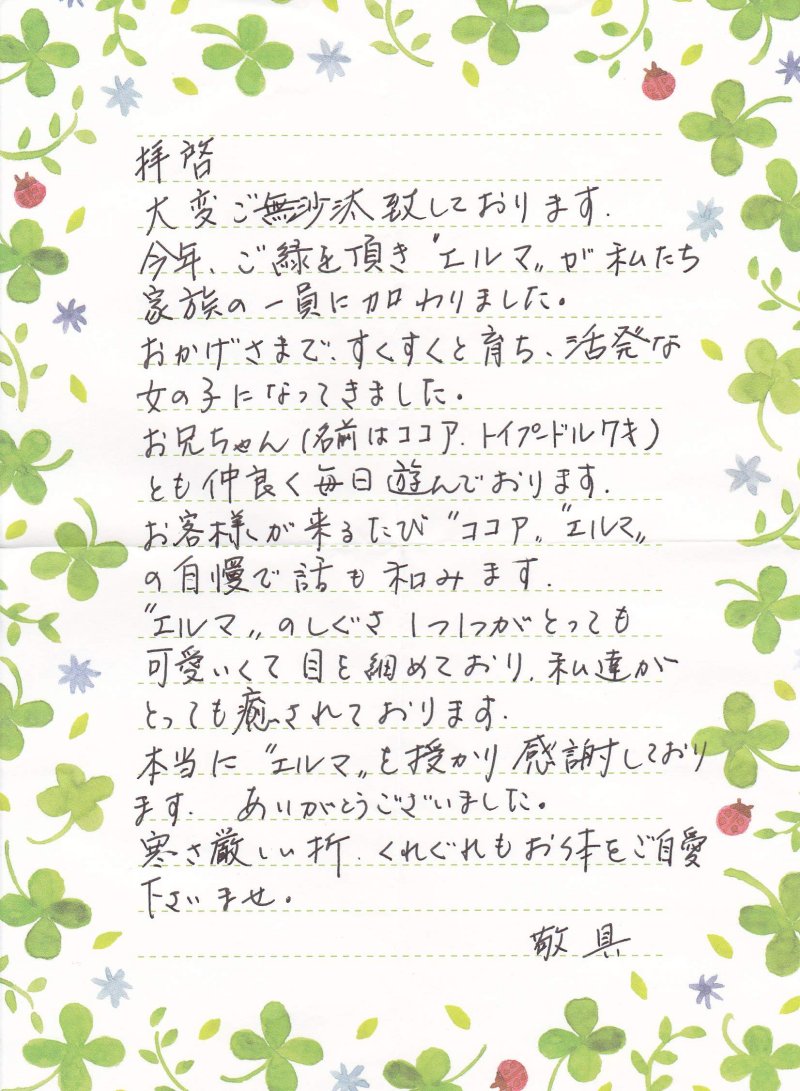 拝啓
大変ご無沙汰致しております.
今年、ご縁を頂き〝エルマ〟が私たち
家族の一員に加わりました。
おかげさまで、すくすくと育ち、活発な
女の子になってきました。
お兄ちゃん(名前はココア.トイプードル7才)
とも仲良く毎日遊んでおります.
お客様が来るたび〝ココア〟〝エルマ〟
の自慢で話も和みます.
〝エルマ〟のしぐさ1つ1つがとっても
可愛いくて目を細めており.私達が
とっても癒されております.
本当に〝エルマ〟を授かり感謝しており
ます. ありがとうございました。
寒さ厳しい折.くれぐれもお体をご自愛
下さいませ。
敬具